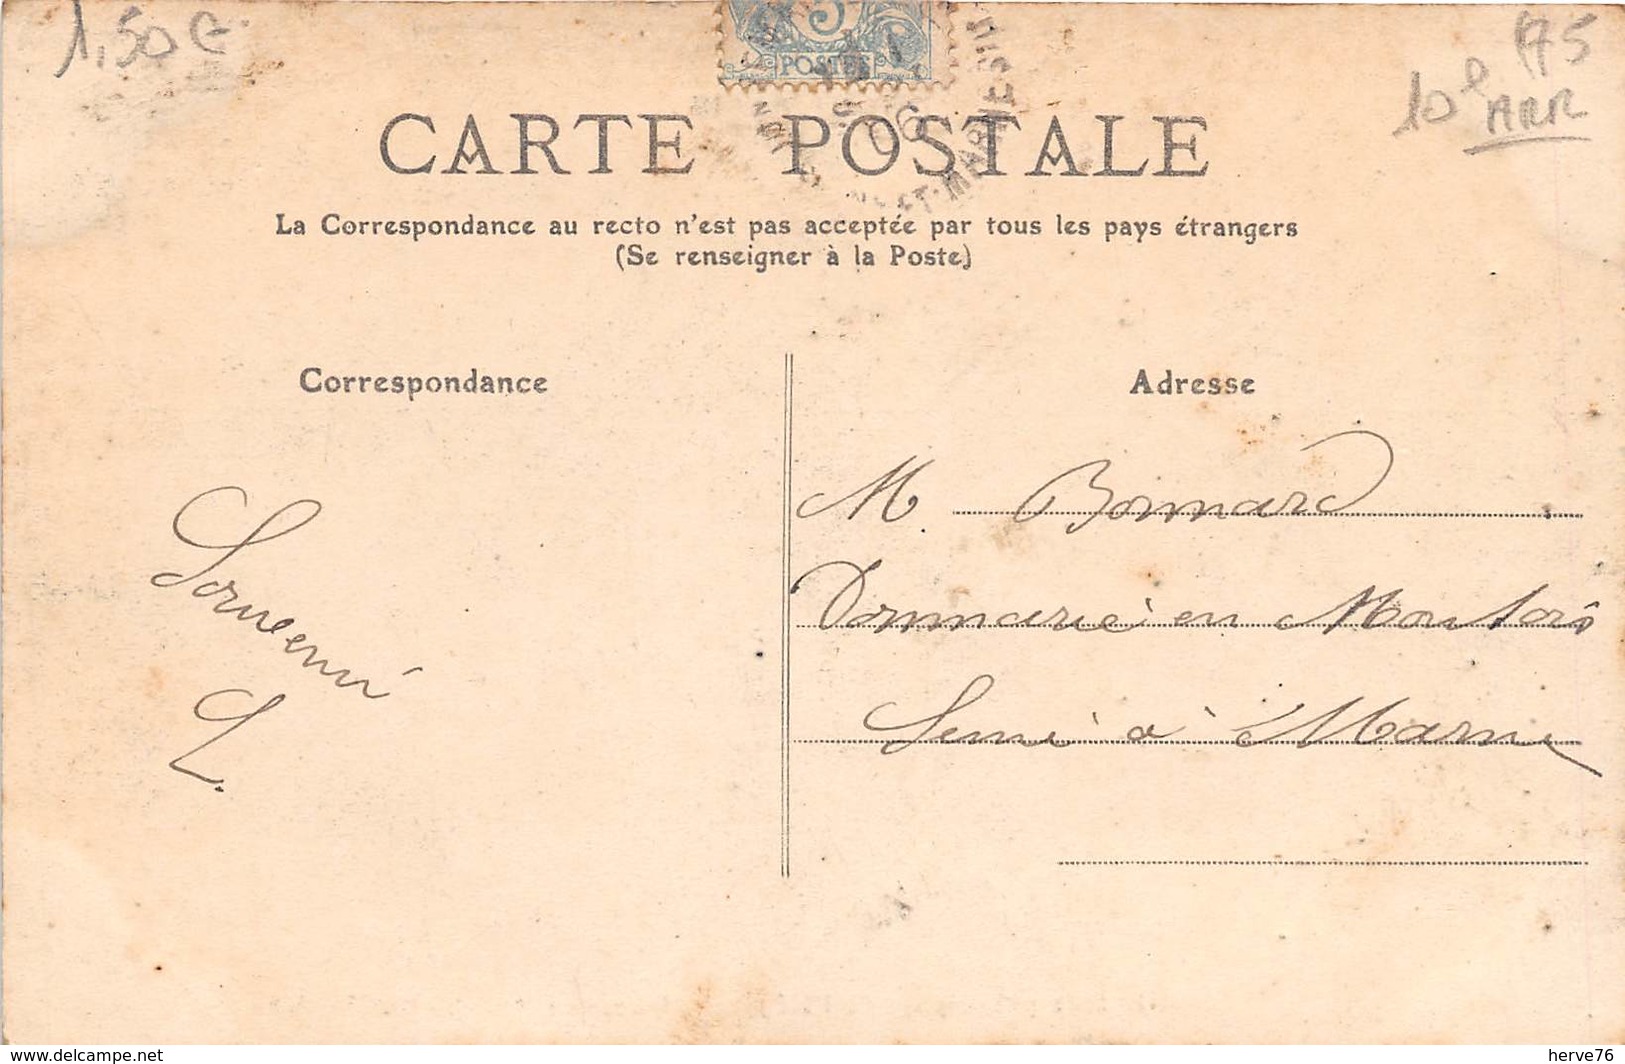 1,50 €
75
10e ARR
5
POSTES
06
ET-MARNE
CARTE POSTALE
La Correspondance au recto n'est pas acceptée par tous les pays étrangers
(Se renseigner à la Poste)
Correspondance
Adresse
Souvenir
L.
M. Bonnard
Donnarie en Montois
Seine à Marne
www.delcampe.net
herve76